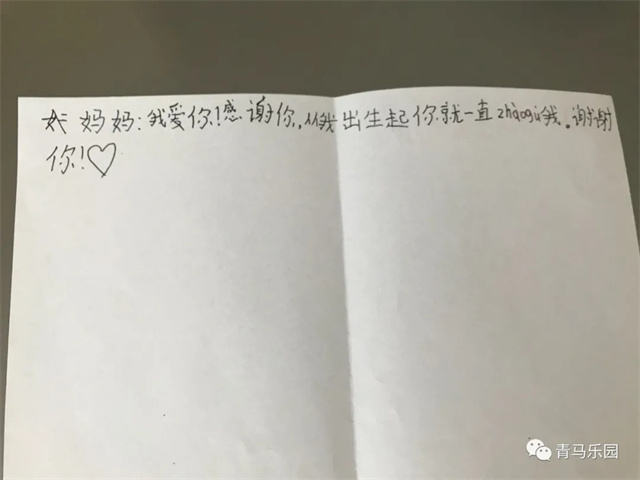 妈妈:我爱你!感谢你,从我出生起你就一直zhàogù我。谢谢
你!♡
青马乐园